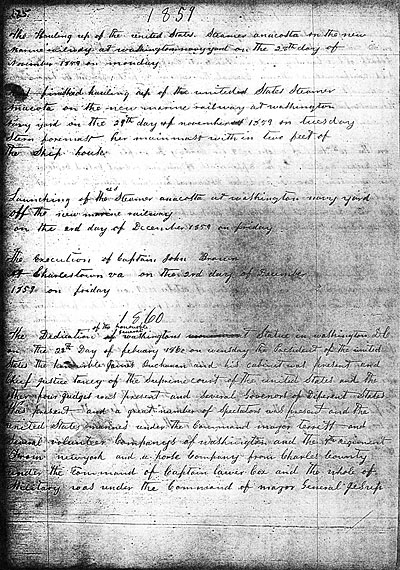 1859
The Hauling up of the united States Steamer anacostia on the new
marine railway at washington navy yard on the 28th day of
November 1859 on monday
finished hauling up of the united States Steamer
on the new marine railway at washington
navy yard on the 29th day of november 1859 on tuesday
Stern foremast her mainmast with in two feet of
the Ship house
Launching of the Steamer anacosta at washington navy yard
off the new marine railway
on the 2nd day of December 1859 on friday
The Execution of Captain John Brown
at Charlestown va on the 2nd day of December
1859 on friday
1860
The Dedication of the honorable general washingtons Statue in washington D.C
on the 22th Day of febuary 1860 on wensday the President of the united
States the James Buchanan and his cabinet was present and
cheif Justice taney of the Supreme court of the united States and the
other four Judges was present and several Govenors of Diferent States
was present and a great number of Spectators was present and the
united States marines under the Command major and
several volunteer Companeys of washington and the 7th regiment
from newyork and a horse Company from Charles County
under the Command of Captain Cox and the whole of
Military was under the Command of major General Jesup